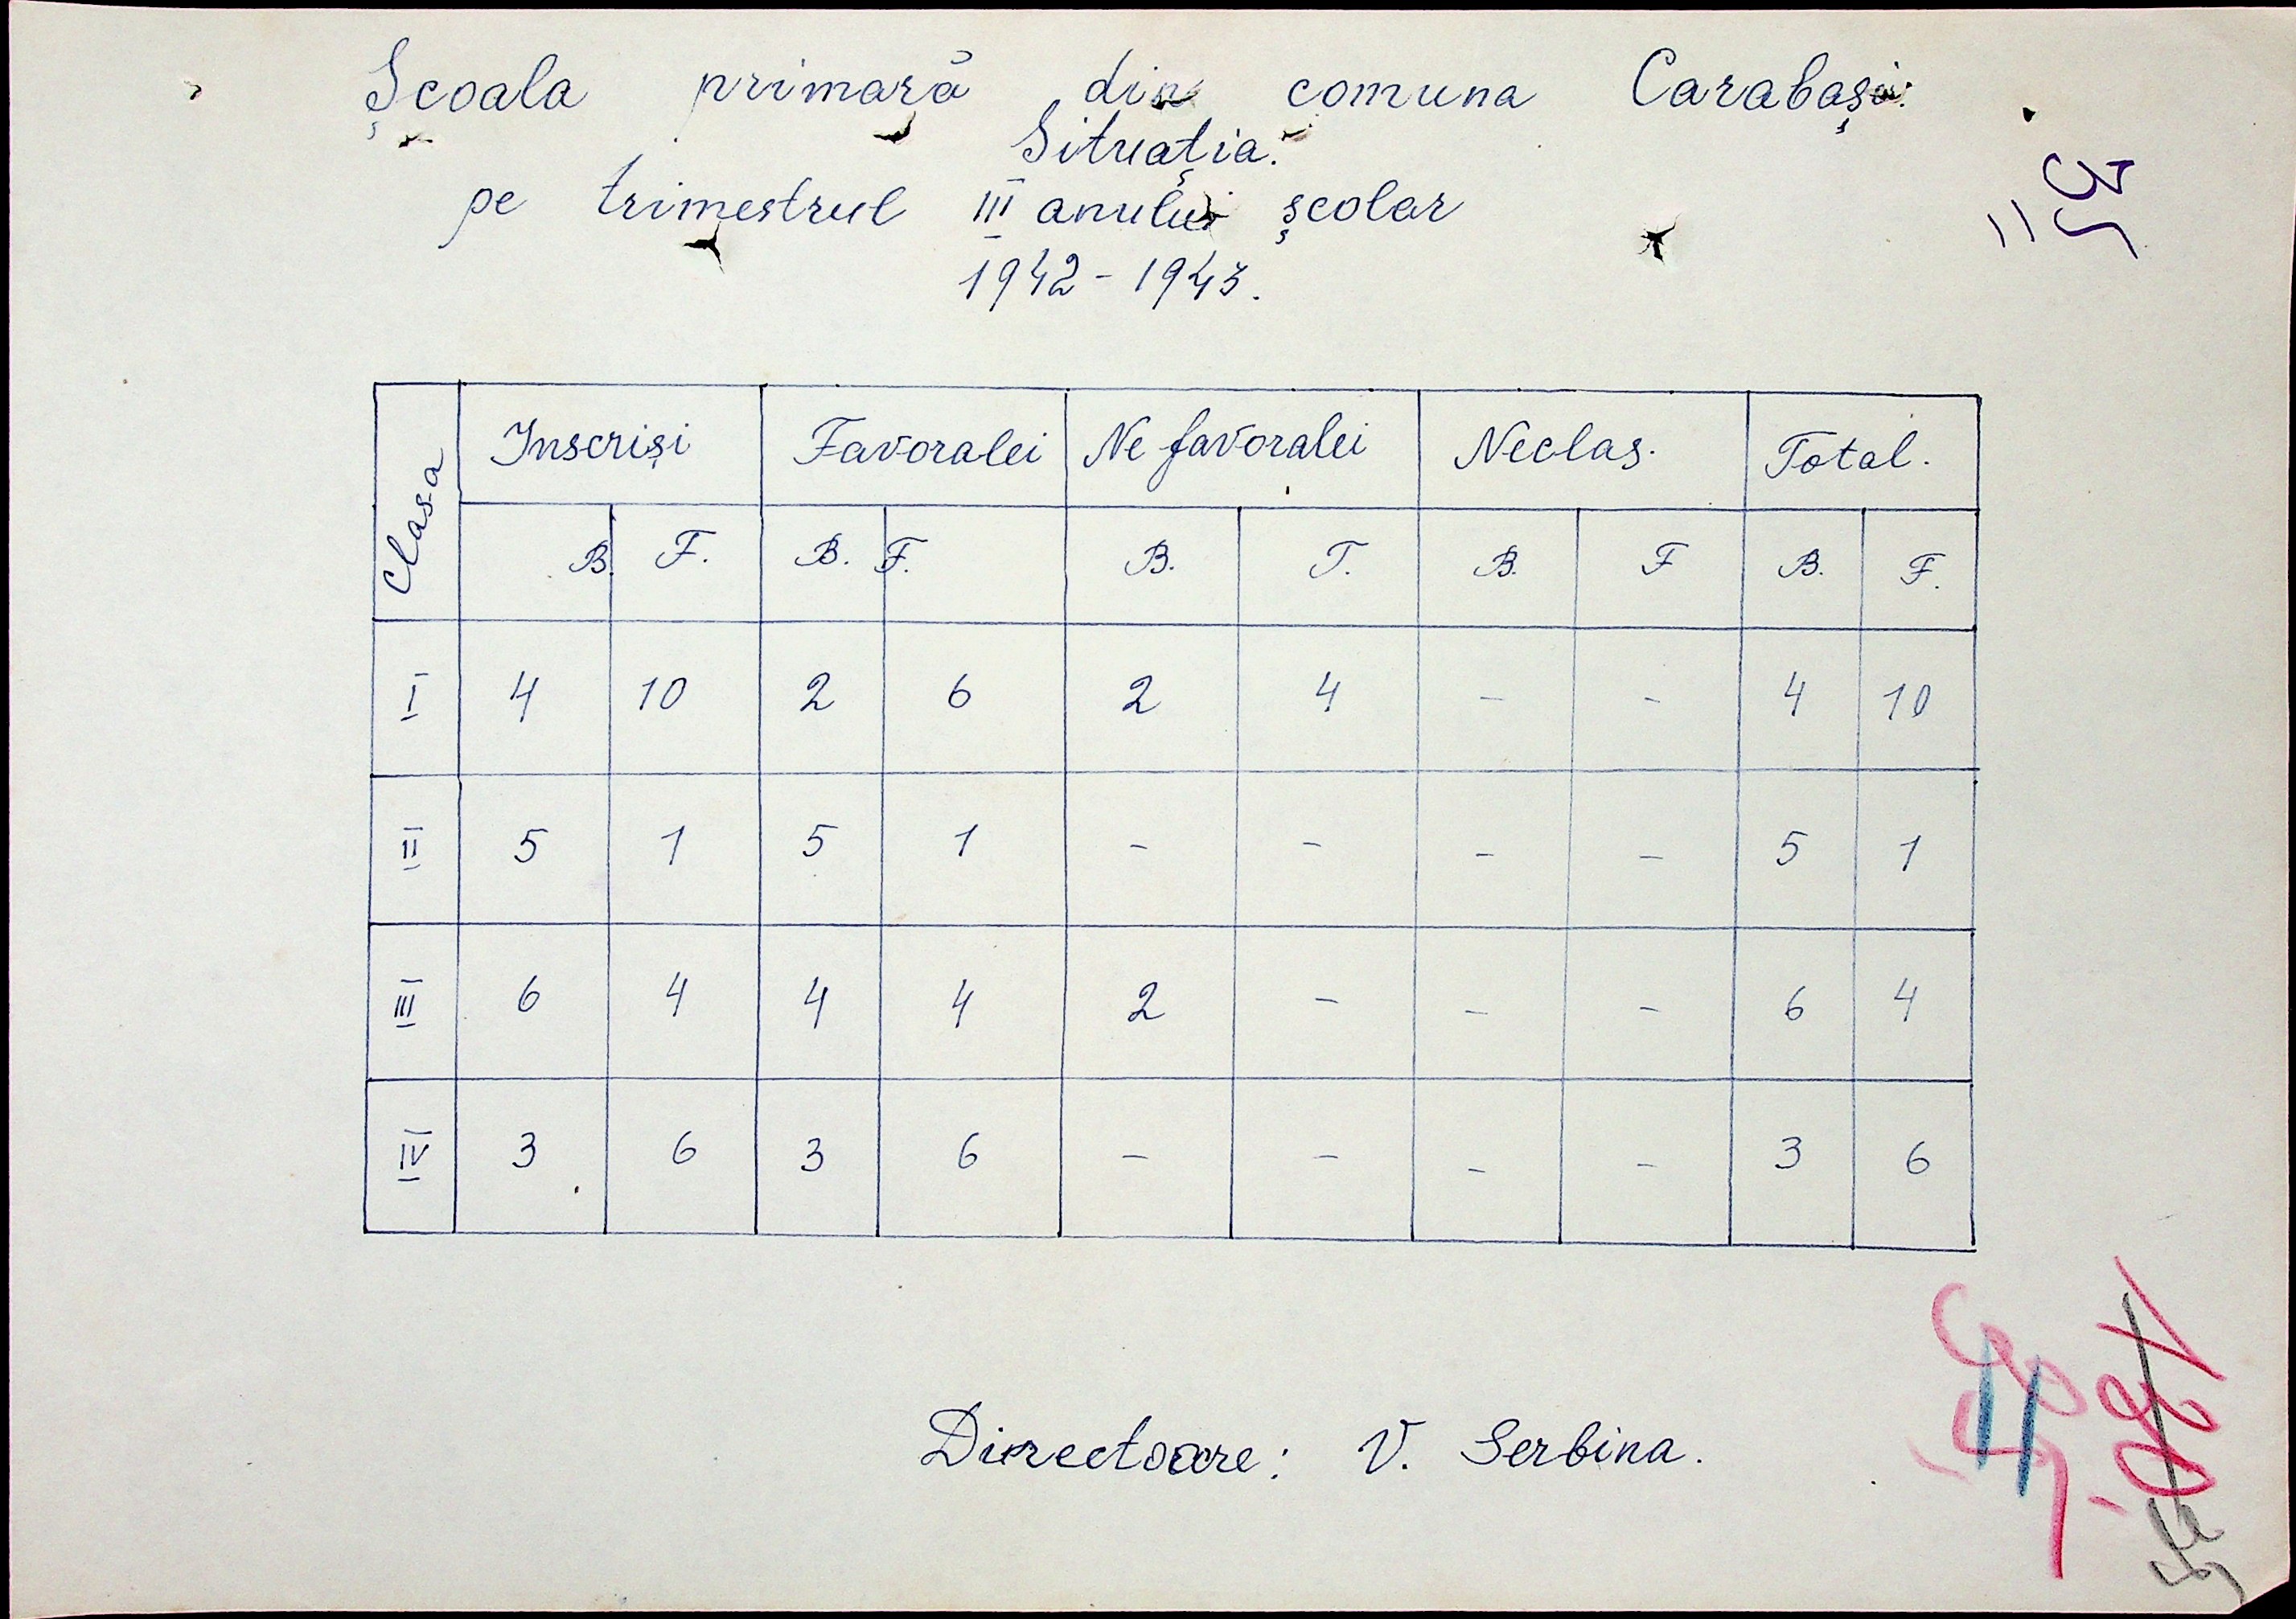 Școala primară din comuna Carabași.
Situația.
pe trimestrul III anului școlar
1942 - 1943.
Clasa Inscriși Favoralei Ne favoralei Neclaș. Total.
B. F. B. F. B. T. B. F B. F.
I 4 10 2 6 2 4 - - 4 10
II 5 1 5 1 - - - - 5 1
III 6 4 4 4 2 - - - 6 4
IV 3 6 3 6 - - - - 3 6
Directoare: V. Serbina.